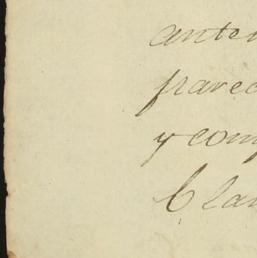 anter
parec
y comp
Clau